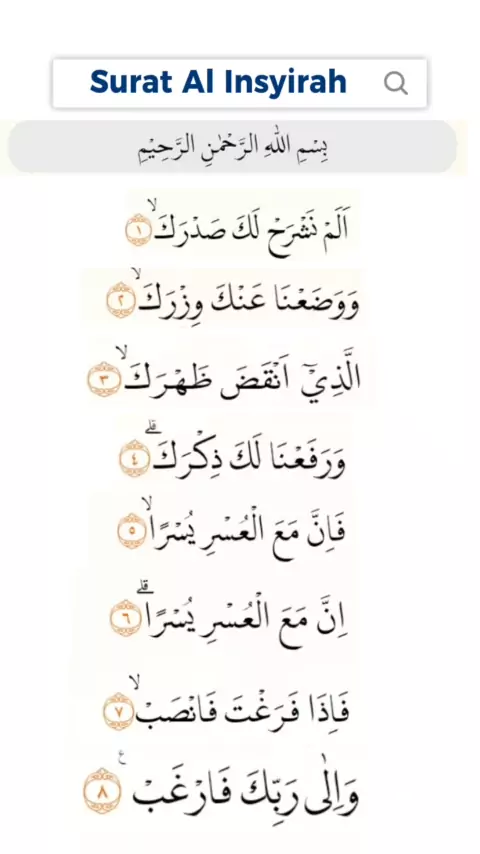 Surat Al Insyirah
بِسْمِ اللّٰهِ الرَّحْمٰنِ الرَّحِيْمِ
اَلَمْ نَشْرَحْ لَكَ صَدْرَكَۙ ١
وَوَضَعْنَا عَنْكَ وِزْرَكَۙ ٢
الَّذِيْٓ اَنْقَضَ ظَهْرَكَۙ ٣
وَرَفَعْنَا لَكَ ذِكْرَكَۗ ٤
فَاِنَّ مَعَ الْعُسْرِ يُسْرًاۙ ٥
اِنَّ مَعَ الْعُسْرِ يُسْرًاۗ ٦
فَاِذَا فَرَغْتَ فَانْصَبْۙ ٧
وَاِلٰى رَبِّكَ فَارْغَبْ ࣖ ٨